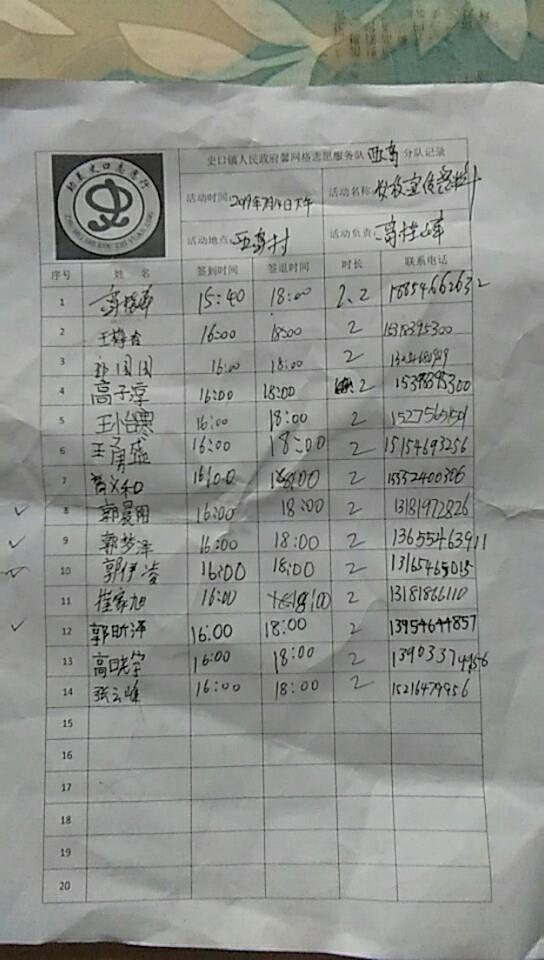 史口镇人民政府馨网格志愿服务队 西高 分队记录
活动时间: 活动名称: 安教宣传
活动地点: 西高村 活动负责: 高桂峰
序号 姓 名 签到时间 签退时间 时长 联系电话
1 15:40 18:00 2.2 18854662632
2 王梅香 16:00 18:00 2 15318395300
3 郭园园 16:00 18:00 2
4 高子淳 16:00 18:00 2 15318395300
5 王怡霖 16:00 18:00 2
6 王勇盛 16:00 18:00 2 15154693256
7 16:00 18:00 2 15552400306
8 郭曼用 16:00 18:00 2 13181972826
9 郭梦泽 16:00 18:00 2 13655463911
10 郭伊凌 16:00 18:00 2 13165465015
11 崔家旭 16:00 18:00 2 13181866110
12 郭昕泽 16:00 18:00 2 13954644857
13 16:00 18:00 2 13903374956
14 张云峰 16:00 18:00 2 15216479956
15
16
17
18
19
20